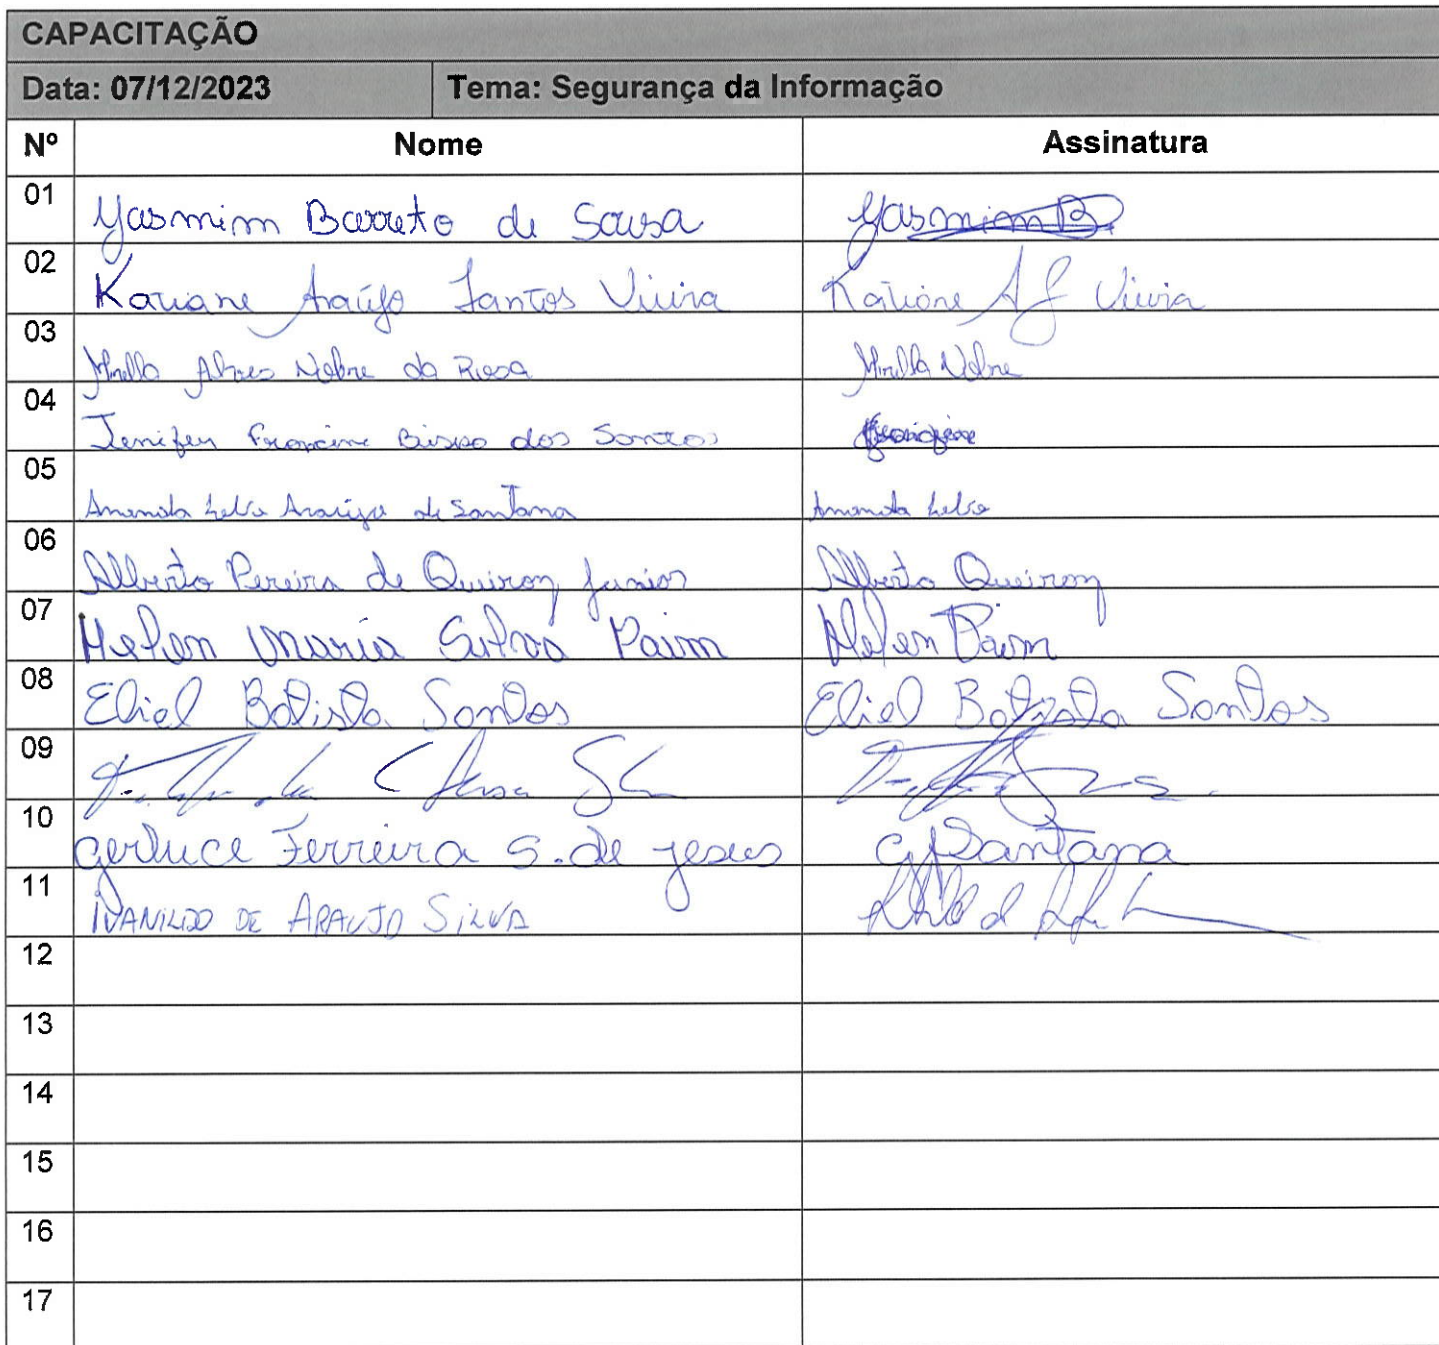 CAPACITAÇÃO
Data: 07/12/2023 Tema: Segurança da Informação
Nº Nome Assinatura
01 Yasmim Barreto de Sousa Yasmim B.
02 Kariane Araújo Santos Vieira Kariane A S Vieira
03 Mirella Alves Nobre da Rosa Mirella Nobre
04 Jenifer Francine Bispo dos Santos
05 Amanda Araújo de Santana Amanda
06 Alberto Pereira de Queiroz Junior Alberto Queiroz
07 Helen Maria Silva Paim Helen Paim
08 Eliel Batista Santos Eliel Batista Santos
09
10 Gerluce Ferreira S. de Jesus Santana
11 IVANILDO DE ARAUJO SILVA
12
13
14
15
16
17